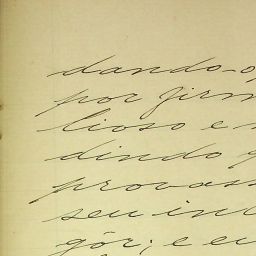 dando-o
por firm
lioso e
dindo q
provass
seu int
gôr; e eu